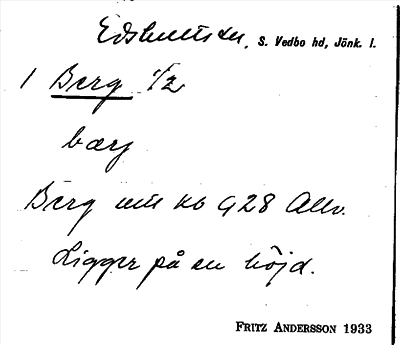 Edshult sn, S. Vedbo hd, Jönk. l.
1 Berg 1/2
bærj
Berg Allv.
Ligger på en höjd.
FRITZ ANDERSSON 1933